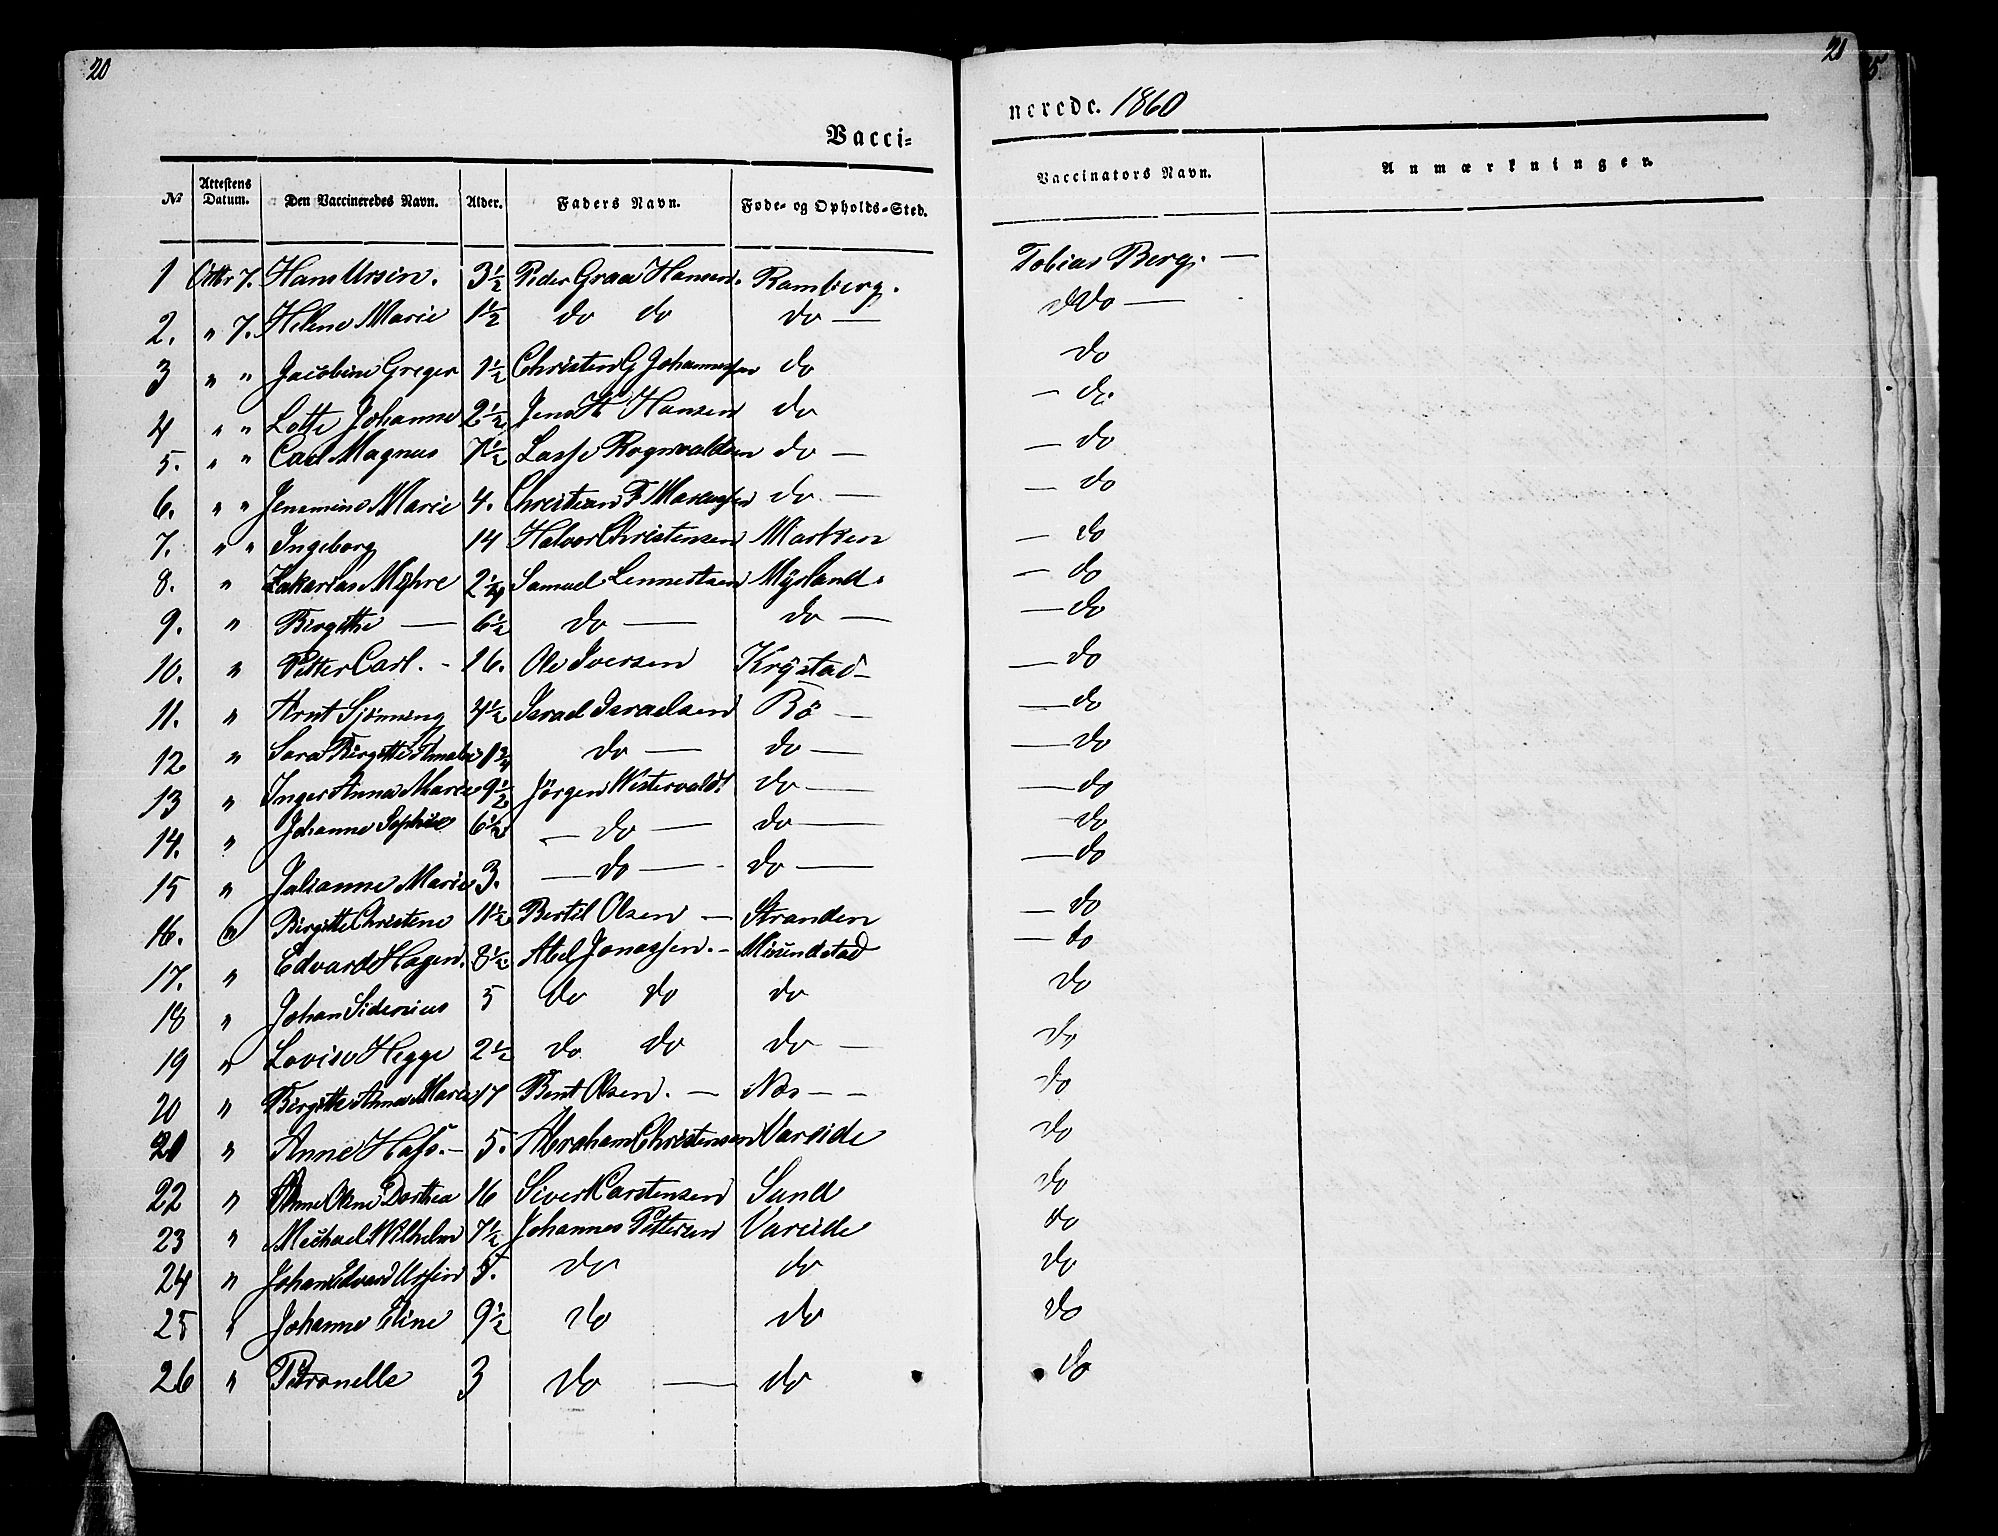 20
21
5.
Vacci=
nerede. 1860
No Attestens Datum. Den Vaccineredes Navn. Alder. Faders Navn. Føde= og Opholds=Sted. Vaccinators Navn. Anmærkninger.
1 Octbr 7. Hans Ursin. 3 1/2 Peder Graa Hansen. Ramberg. Tobias Berg. —
2. " 7. Helene Marie 1 1/2 do do do — do —
3 " " Jacobine Greger 1 1/2 Christen G Johannessen do do
4 " " Lotte Johanne 2 1/2 Jens H Hansen do — do.
5. " " Carl Magnus 7 1/2 Lasse Rognvaldsen do — — do
6. " " Jensmine Marie 4. Christian F Markussen do — — do
7. " " Ingeborg 14 Halvor Christensen Marken — do
8. " Zakarias Myhre 2 1/4 Samuel Lennertsen Myrland. — do
9. " Birgithe — 6 1/2 do — do — — do
10. " Petter Carl. - 16. Ole Iversen Krystad — do
11. " Arnt Sjønning 4 1/2 Israel Israelsen Bö — — do
12 " Sara Birgitte Amalie 1 3/4 do — do — — do
13 " Inger Anna Marie 9 1/2 Jörgen Westervaldt do — — do
14. " Johanne Sophie 6 1/2 — do — do — do
15 " Julianne Marie 3. — do — do — — do
16. " Birgitte Christene 11 1/2 Bertil Olsen — Stranden — do
17. " Edvard Hagen. 8 1/2 Abel Jonassen. - Mölundstad — do
18 " Johan Siderius 5 do do do do
19 " Lovise Hegge 2 1/2 do do do — do
20 " Birgitte Anna Marie 17 Bent Olsen. — Næs - - do
21 " Anne Hass. - 5. Abraham Christensen Vareide do
22 " Anne Oline Dorthea 16 Siver Carstensen Sund do
23 " Michael Wilhelm 7 1/2 Johannes Pettersen Vareide do
24 " Johan Edvard Ursin 5. do do do
25 " Johanne Eline 9 1/2 do do do
26 " Petronelle 3 do — do do